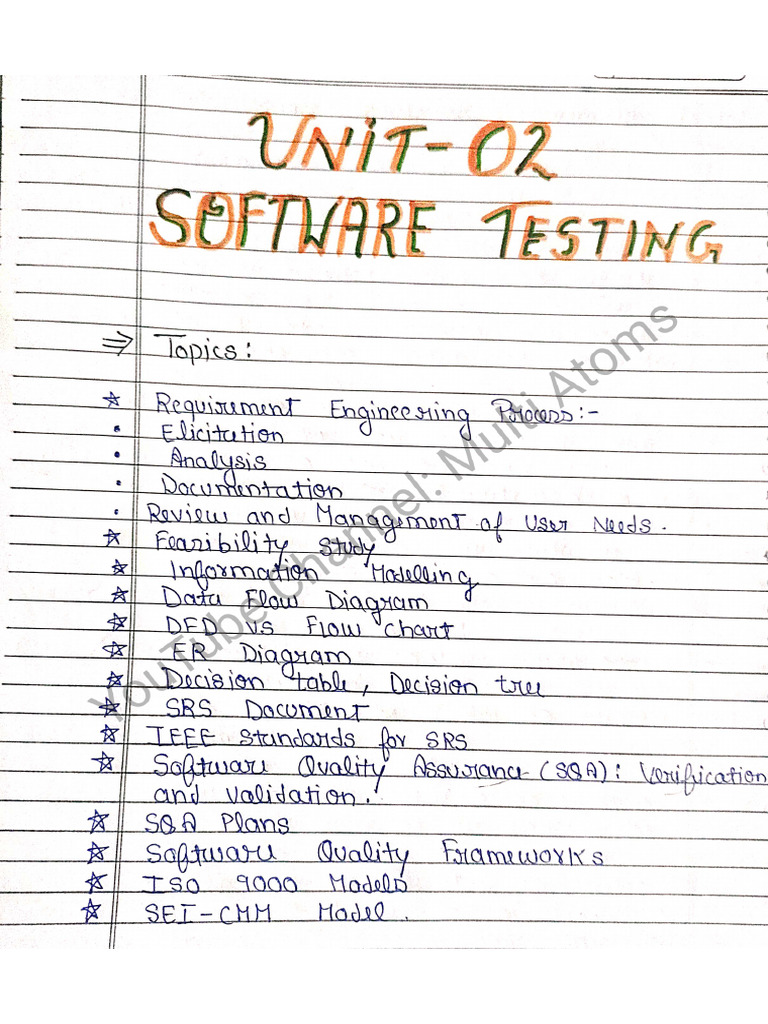 UNIT-02
SOFTWARE TESTING
⇒ Topics:
☆ Requirement Engineering Process:-
• Elicitation
• Analysis
• Documentation
• Review and Management of User Needs.
☆ Feasibility Study
☆ Information Modelling
☆ Data Flow Diagram
☆ DFD Vs Flow Chart
☆ ER Diagram
☆ Decision table, Decision tree
☆ SRS Document
☆ IEEE Standards for SRS
☆ Software Quality Assurance (SQA): Verification
and Validation.
☆ SQA Plans
☆ Software Quality Frameworks
☆ ISO 9000 Models
☆ SEI-CMM Model.
YouTube Channel: Multi Atoms